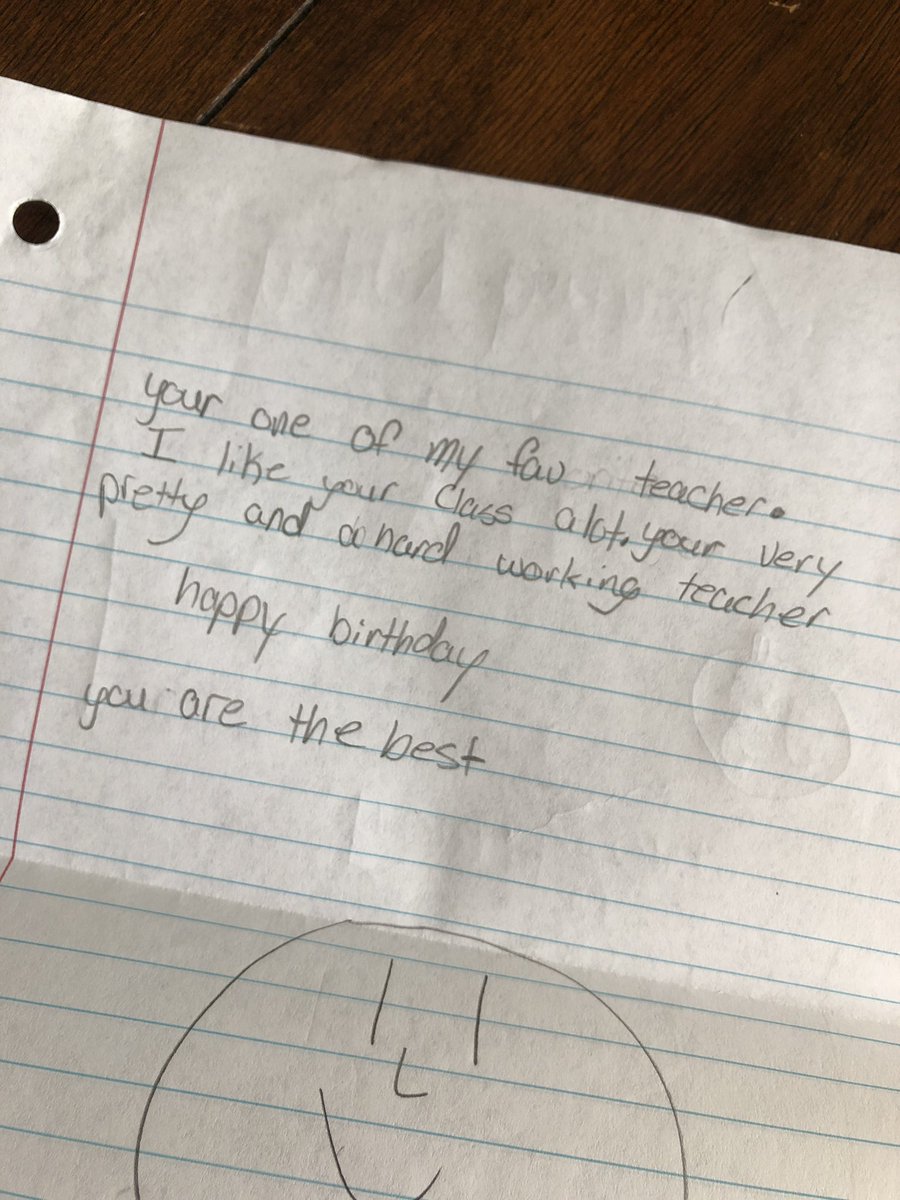 your one of my fav teacher.
I like your class alot. your very
pretty and a hard working teacher
happy birthday
you are the best